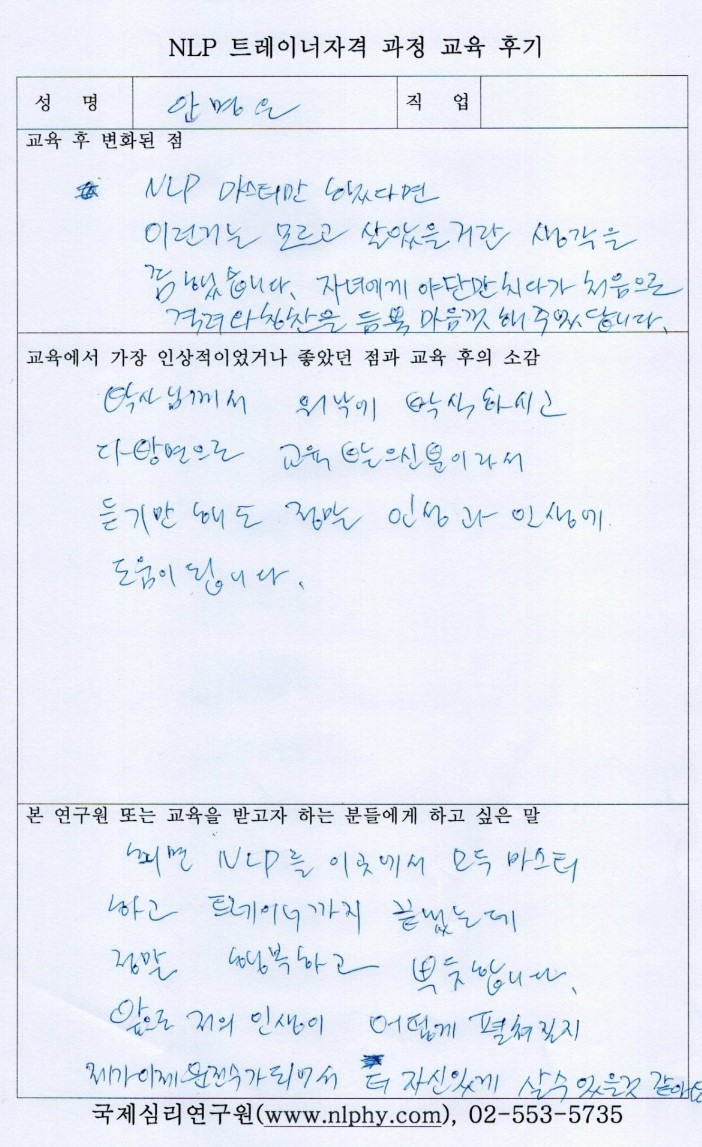 NLP 트레이너자격 과정 교육 후기
성 명 안명은 직 업
교육 후 변화된 점
NLP 마스터만 했다면
이런거는 모르고 살았을거란 생각을
했습니다. 자녀에게 야단만 치다가 처음으로
격려와 칭찬을 듬뿍 마음껏 해주었답니다.
교육에서 가장 인상적이었거나 좋았던 점과 교육 후의 소감
박사님께서 워낙에 박식하시고
다방면으로 교육 받으신분이라서
듣기만 해도 정말 인생과 인생에
도움이 됩니다.
본 연구원 또는 교육을 받고자 하는 분들에게 하고 싶은 말
최면 NLP를 이곳에서 모두 마스터
하고 트레이너까지 끝냈는데
정말 행복하고 뿌듯합니다.
앞으로 저의 인생이 어떻게 펼쳐질지
제가 이제 되어서 더 자신있게 살수 있을것 같아요
국제심리연구원(www.nlphy.com), 02-553-5735